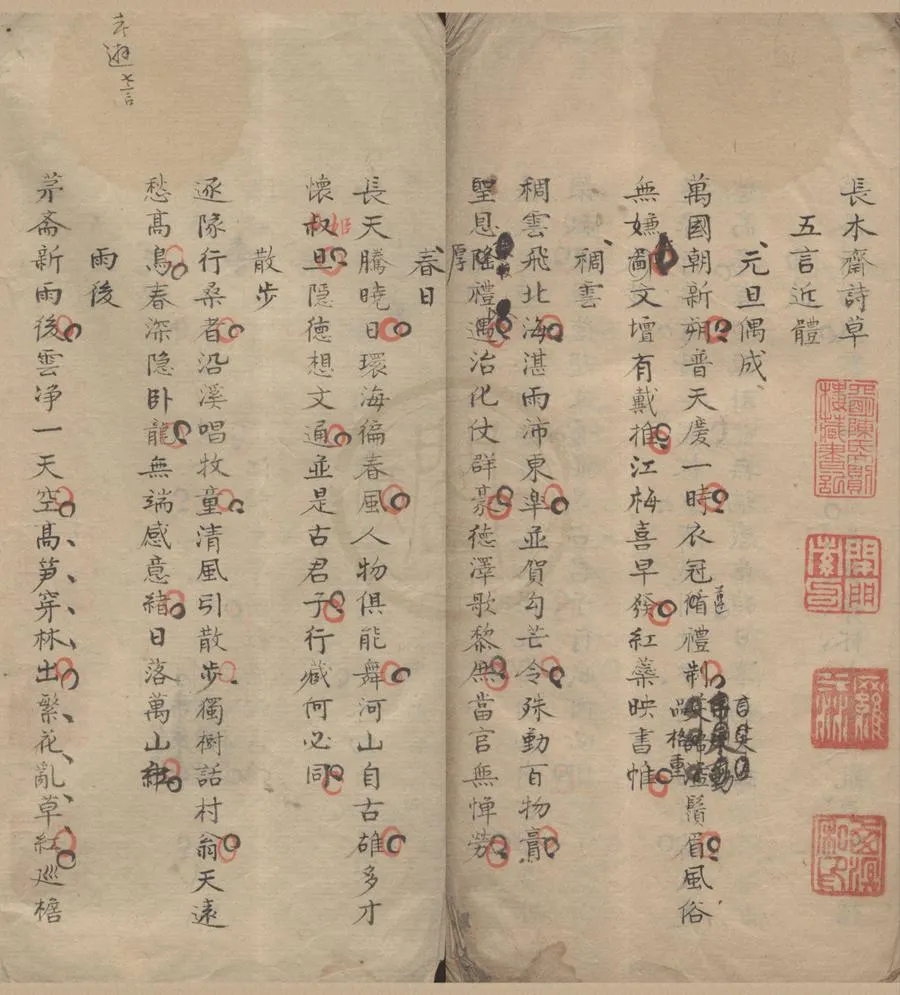 長木齋詩草
五言近體
元旦偶成
萬國朝新朔普天慶一時衣冠循禮制鬚眉風俗
無嫌文壇有戴推江梅喜早發紅藥映書帷
品格重
稠雲
稠雲飛北海湛雨沛東皐並賀勾芒令殊動百物膏
聖恩隆禮遇治化仗群豪德澤歌黎庶當官無憚勞
厚
春日
長天騰曉日環海徧春風人物俱能舞河山自古雄多才
懷叔旦隱德想文通並是古君子行藏何必同
姬
散步
逐隊行桑者沿溪唱牧童清風引散步獨樹話村翁天遠
愁高鳥春深隐卧龍無端感意緒日落萬山紅
雨後
茅斋新雨後雲净一天空髙笋穿林出繁花亂草紅巡檐
遊
七言